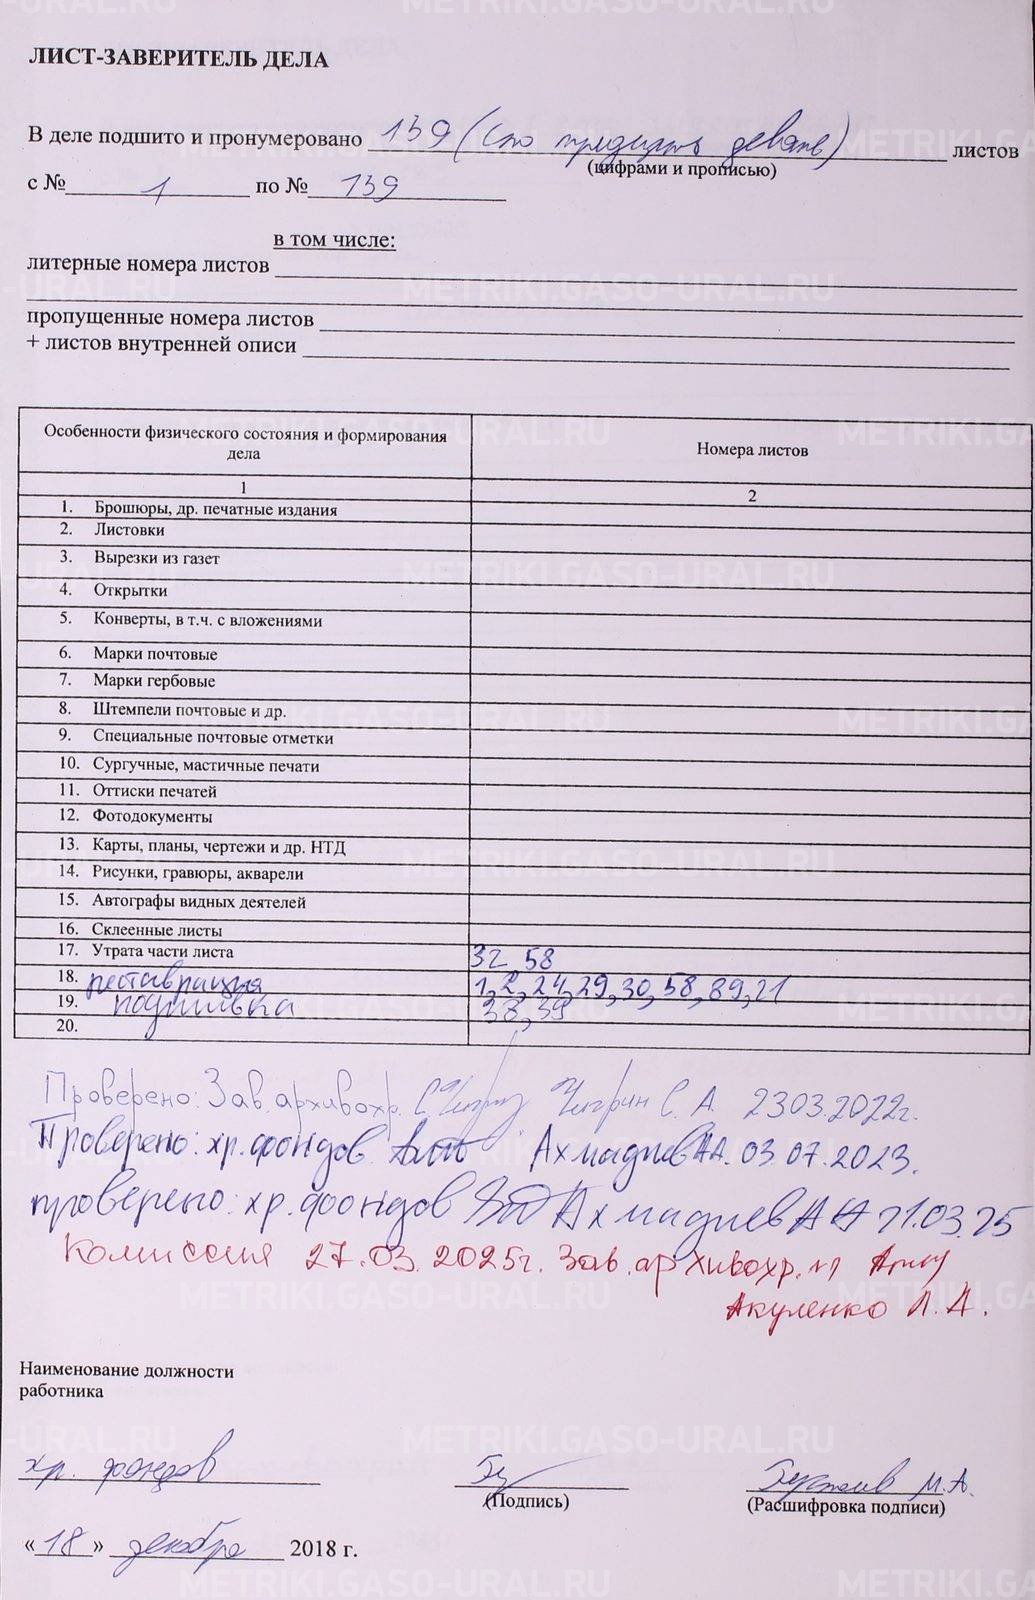 ЛИСТ-ЗАВЕРИТЕЛЬ ДЕЛА
В деле подшито и пронумеровано 139 (сто тридцать девять) листов
(цифрами и прописью)
с № 1 по № 139
в том числе:
литерные номера листов
пропущенные номера листов
+ листов внутренней описи
Особенности физического состояния и формирования дела
Номера листов
1
2
1. Брошюры, др. печатные издания
2. Листовки
3. Вырезки из газет
4. Открытки
5. Конверты, в т.ч. с вложениями
6. Марки почтовые
7. Марки гербовые
8. Штемпели почтовые и др.
9. Специальные почтовые отметки
10. Сургучные, мастичные печати
11. Оттиски печатей
12. Фотодокументы
13. Карты, планы, чертежи и др. НТД
14. Рисунки, гравюры, акварели
15. Автографы видных деятелей
16. Склеенные листы
17. Утрата части листа 32, 58
18. реставрация 1, 2, 24, 29, 30, 58, 89, 21
19. подшивка 38, 39
20.
Проверено: Зав. архивохр. Чигрин С. А. 23.03.2022г.
Проверено: хр. фондов Ахмадиев АА. 03.07.2023.
проверено: хр. фондов Ахмадиев АА 21.03.25
Комиссия 27.03.2025г. Зав. архивохр.
Акуленко Л. А.
Наименование должности
работника
хр. фондов
(Подпись)
М.А.
(Расшифровка подписи)
«18» декабря 2018 г.
METRIKI.GASO-URAL.RU